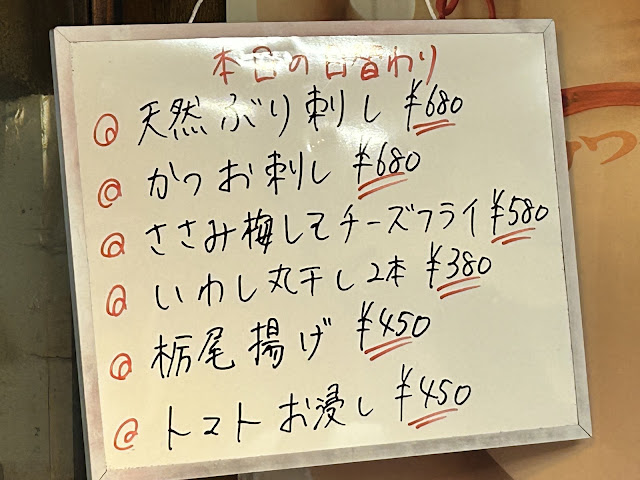 本日の日替わり
◎ 天然ぶり刺し ¥680
◎ かつお刺し ¥680
◎ ささみ梅しそチーズフライ ¥580
◎ いわし丸干し2本 ¥380
◎ 栃尾揚げ ¥450
◎ トマトお浸し ¥450